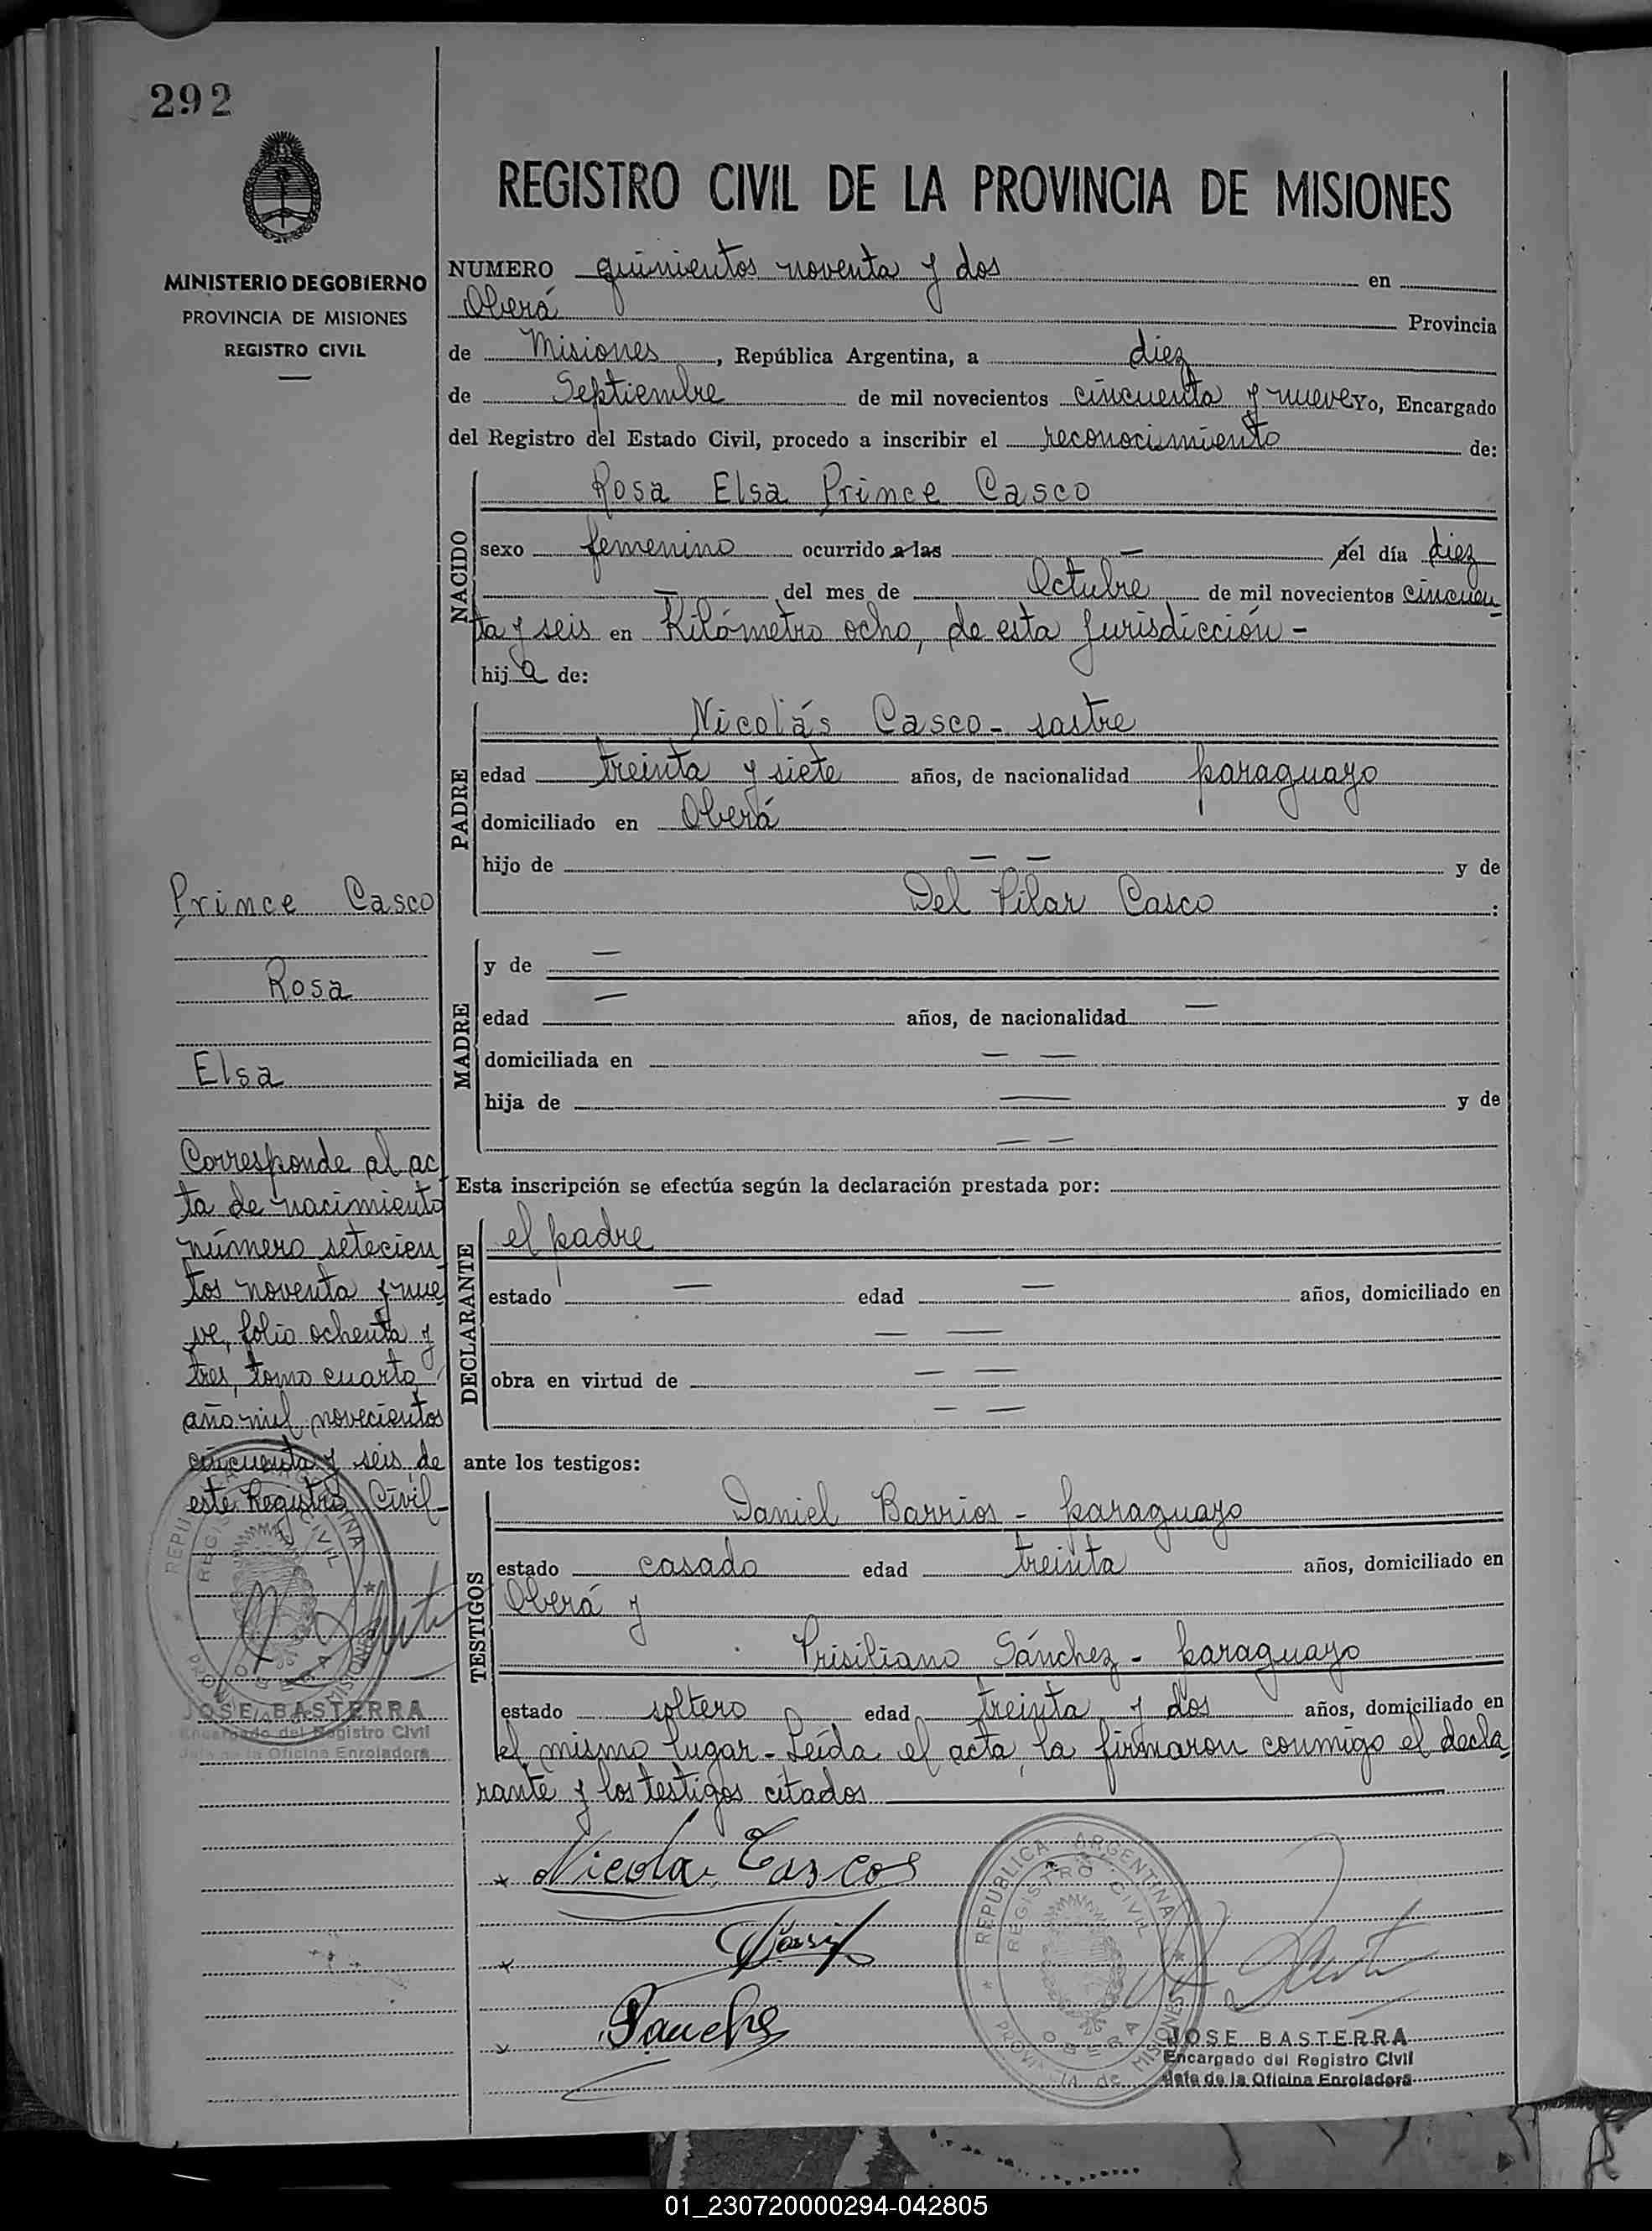 292
REGISTRO CIVIL DE LA PROVINCIA DE MISIONES
MINISTERIO DE GOBIERNO
PROVINCIA DE MISIONES
REGISTRO CIVIL
NUMERO quinientos noventa y dos en
Oberá Provincia
de Misiones, República Argentina, a diez
de Septiembre de mil novecientos cincuenta y nueve Yo, Encargado
del Registro del Estado Civil, procedo a inscribir el reconocimiento de:
NACIDO
Rosa Elsa Prince Casco
sexo femenino ocurrido a las — del día diez
— del mes de Octubre de mil novecientos cincuen
ta y seis en Kilómetro ocho, de esta jurisdicción -
hija de:
PADRE
Nicolás Casco - sastre
edad treinta y siete años, de nacionalidad paraguayo
domiciliado en Oberá
hijo de — — y de
Del Pilar Casco :
MADRE
y de —
edad — años, de nacionalidad —
domiciliada en — —
hija de — y de
— —
Esta inscripción se efectúa según la declaración prestada por:
DECLARANTE
el padre
estado — edad — años, domiciliado en
— —
obra en virtud de — —
— —
ante los testigos:
TESTIGOS
Daniel Barrios - paraguayo
estado casado edad treinta años, domiciliado en
Oberá y
Prisiliano Sánchez - paraguayo
estado soltero edad treinta y dos años, domiciliado en
el mismo lugar - Leída el acta, la firmaron conmigo el decla
rante y los testigos citados
Prince Casco
Rosa
Elsa
Corresponde al ac
ta de nacimiento
número setecien
tos noventa y nue
ve, folio ochenta y
tres, tomo cuarto
año mil novecientos
cincuenta y seis de
este Registro Civil -
REPUBLICA ARGENTINA
REGISTRO CIVIL
OBERA
PROVINCIA de MISIONES
JOSE BASTERRA
Encargado del Registro Civil
Jefe de la Oficina Enroladora
Nicolas Cascos
Sanchez
REPUBLICA ARGENTINA
REGISTRO CIVIL
OBERA
PROVINCIA de MISIONES
JOSE BASTERRA
Encargado del Registro Civil
Jefe de la Oficina Enroladora
01_230720000294-042805